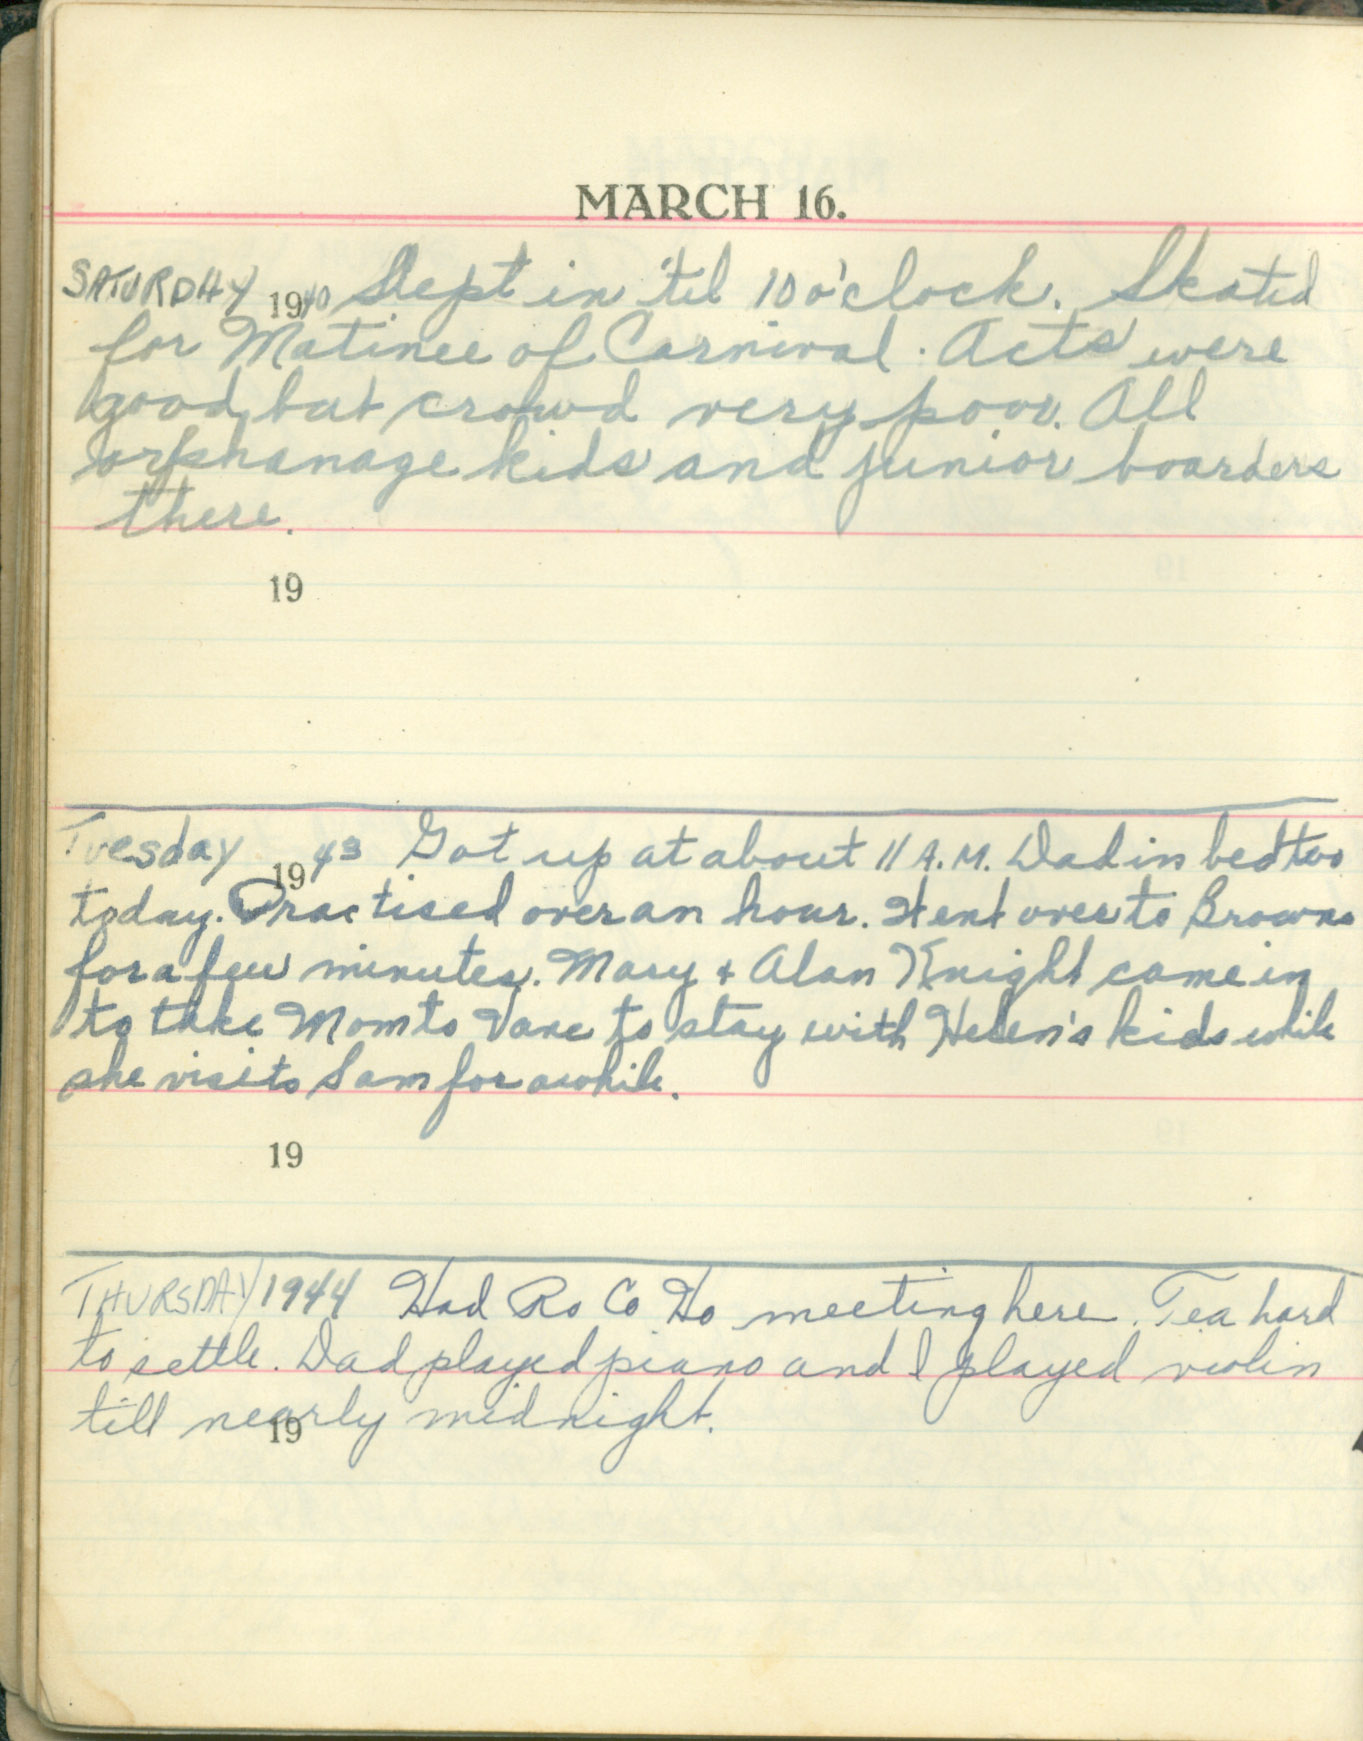 MARCH 16.
SATURDAY 1940 Slept in 'til 10 o'clock. Skated
for Matinee of Carnival. Acts were
good, but crowd very poor. All
orphanage kids and junior boarders
there.
19
Tuesday 1943 Got up at about 11 A.M. Dad in bed too
today. Practised over an hour. Went over to Browns
for a few minutes. Mary + Alan Knight came in
to take Mom to Vane to stay with Helen's kids while
she visits Sam for awhile.
19
THURSDAY 1944 Had Ro Co Ho meeting here. Tea hard
to settle. Dad played piano and I played violin
till nearly midnight.
19